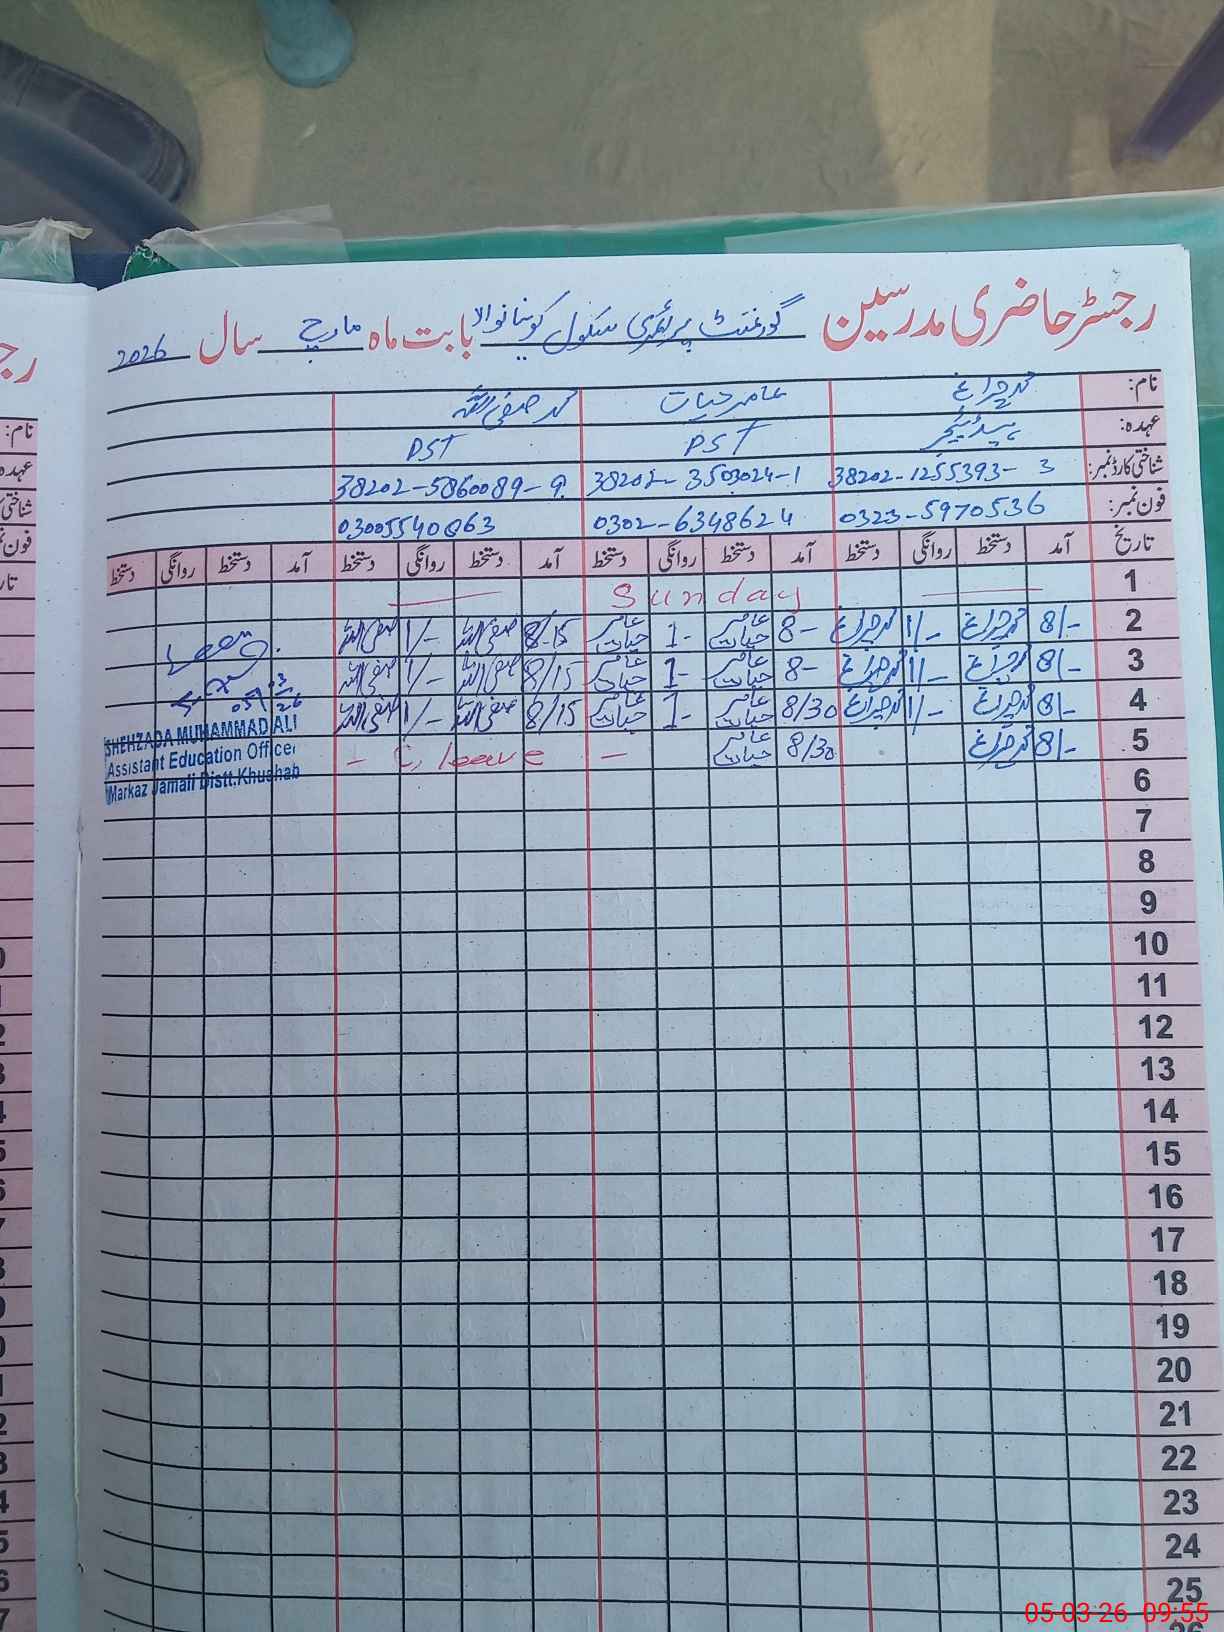 رجسٹر حاضری مدرسین گورنمنٹ پرائمری سکول بابت ماہ مارچ سال 2026
نام: محمد چراغ عامر حیات محمد صفی اللہ
عہدہ: ہیڈ ٹیچر PST PST
شناختی کارڈ نمبر: 38202-1255393-3 38202-3503024-1 38202-5860089-9
فون نمبر: 0323-5970536 0302-6348624 03005540863
تاریخ آمد دستخط روانگی دستخط آمد دستخط روانگی دستخط آمد دستخط روانگی دستخط آمد دستخط روانگی دستخط
1 Sunday
2 8/- محمد چراغ 1/- محمد چراغ 8- عامر حیات 1- عامر حیات 8/15 صفی اللہ 1/- صفی اللہ
3 8/- محمد چراغ 1/- محمد چراغ 8- عامر حیات 1- عامر حیات 8/15 صفی اللہ 1/- صفی اللہ
4 8/- محمد چراغ 1/- محمد چراغ 8/30 عامر حیات 1- عامر حیات 8/15 صفی اللہ 1/- صفی اللہ
5 8/- محمد چراغ 8/30 عامر حیات - C, leave -
05/03/26
SHEHZADA MUHAMMAD ALI
Assistant Education Officer
Markaz Jamali Distt. Khushab
6
7
8
9
10
11
12
13
14
15
16
17
18
19
20
21
22
23
24
25
05-03-26 09:55